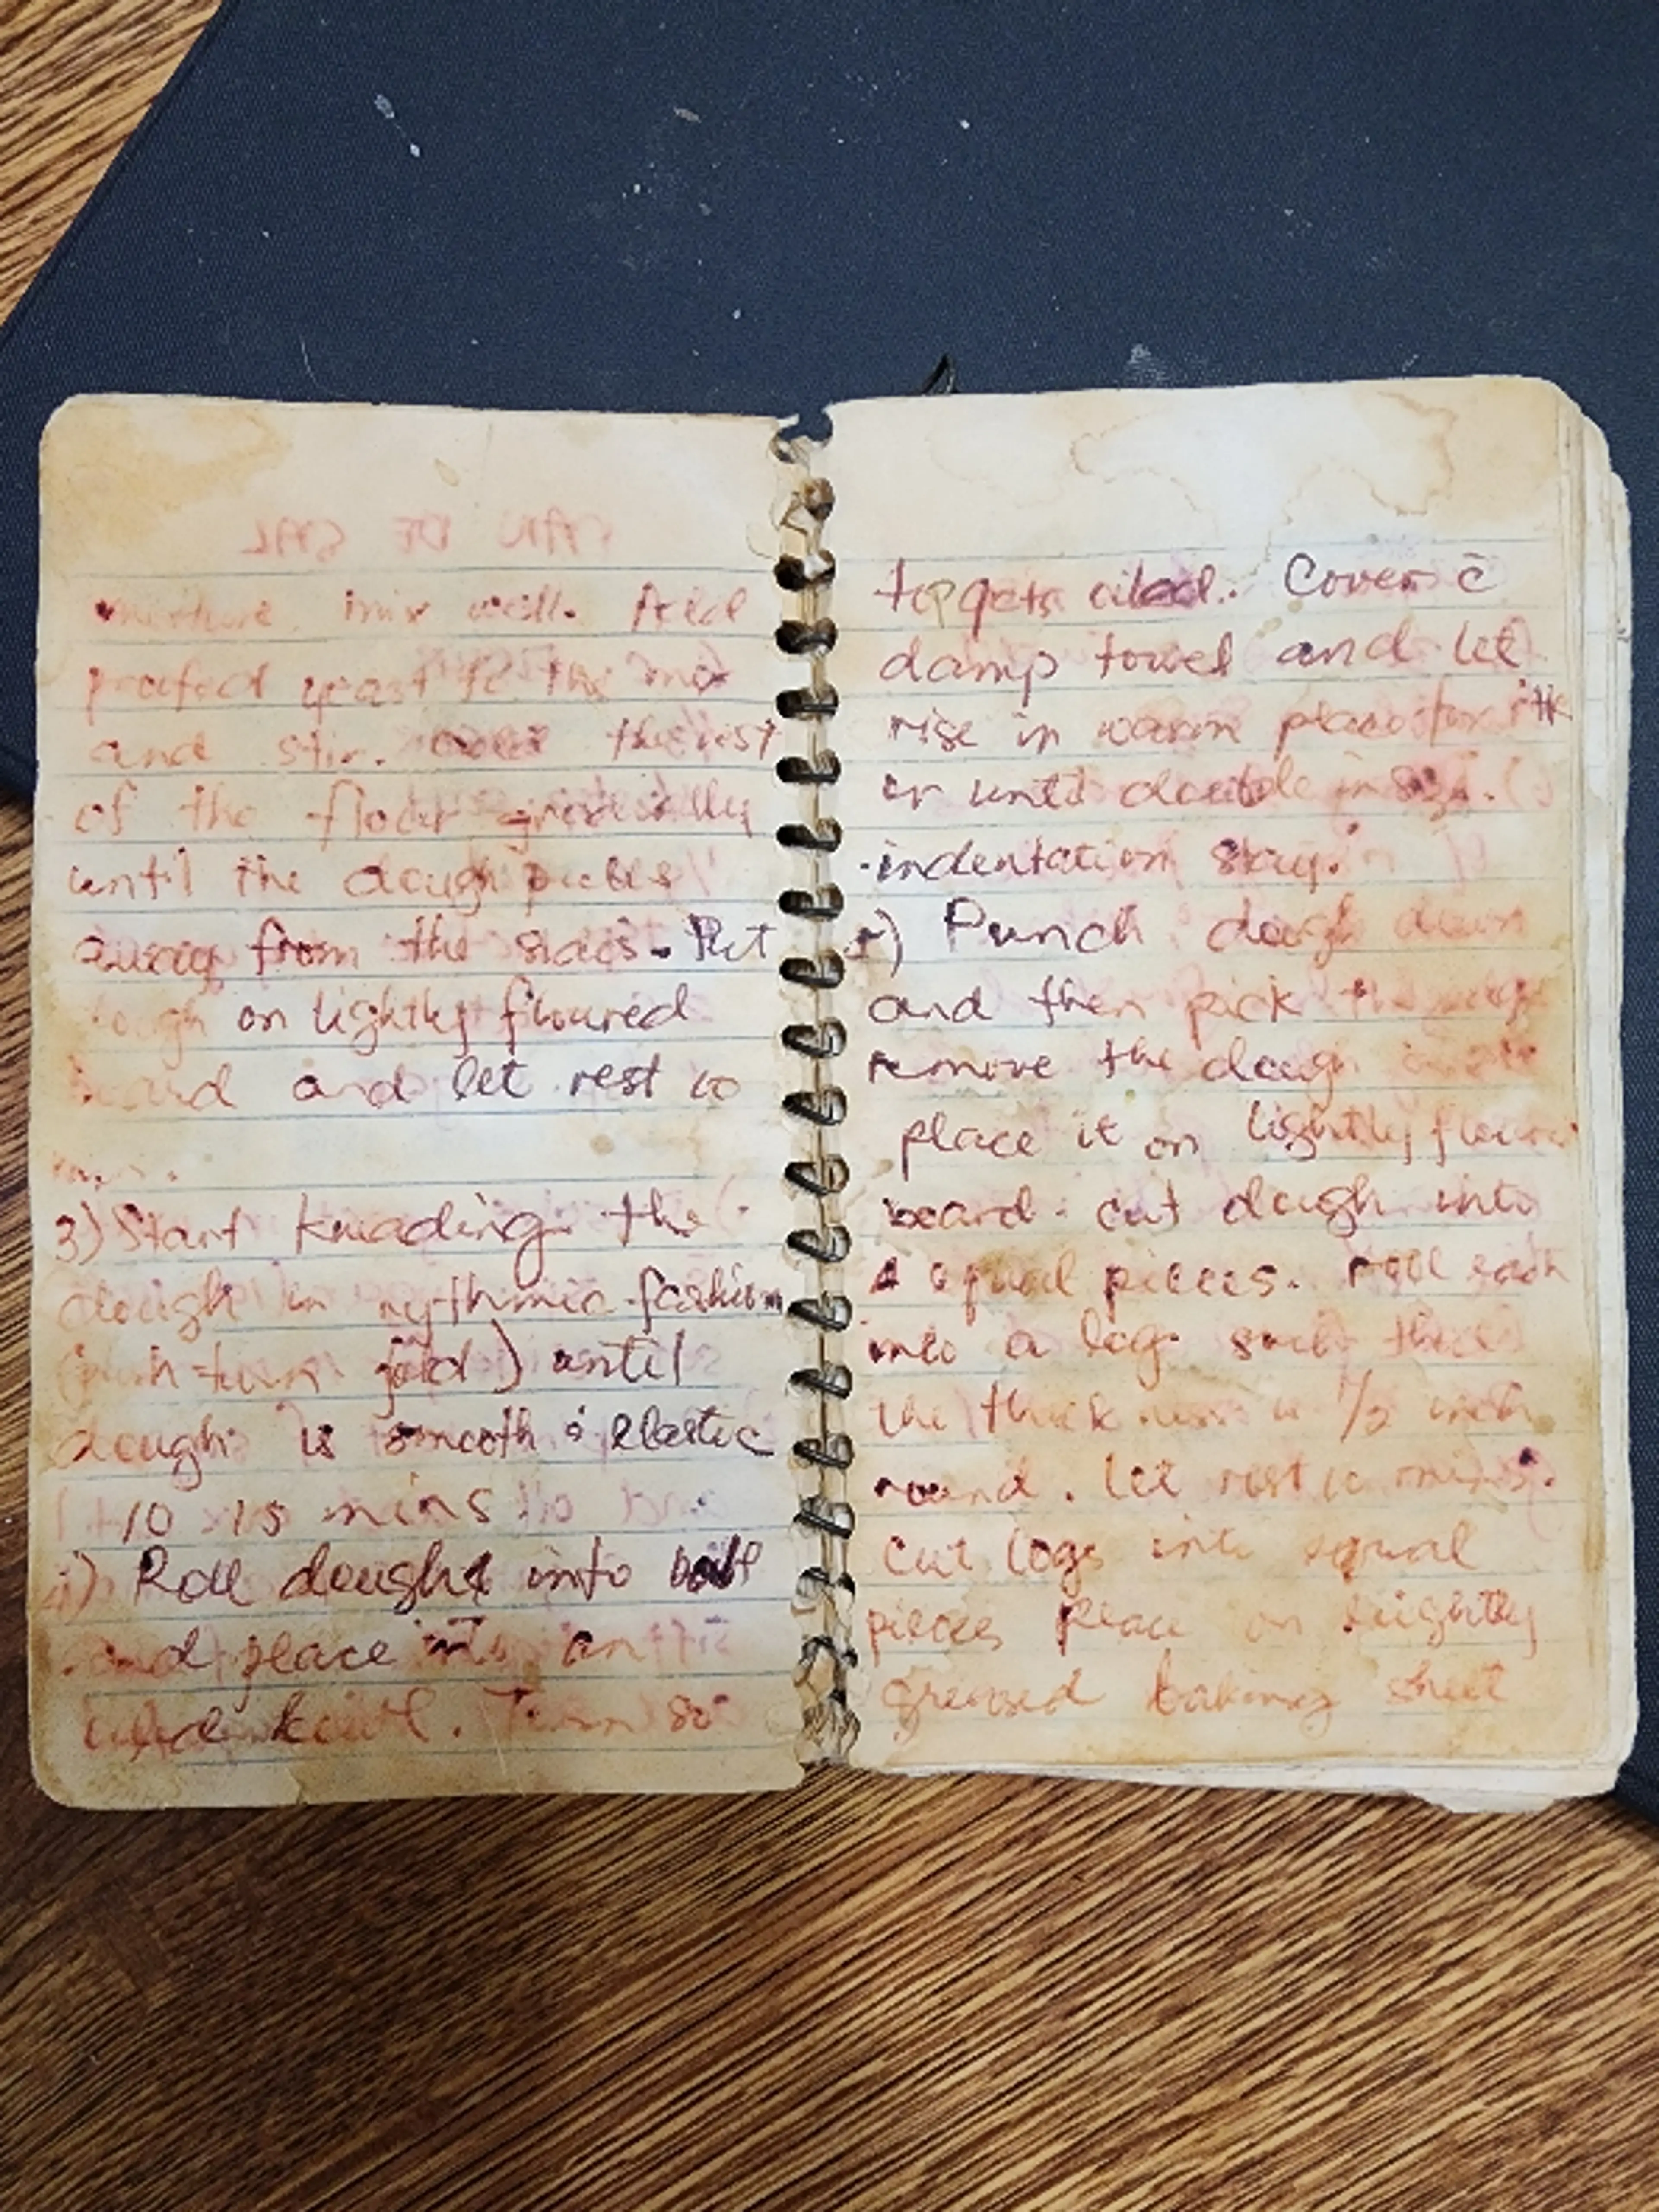 PAN DE SAL
mixture mix well. Add
proofed yeast to the mix
and stir. the rest
of the flour gradually
until the dough pulls
away from the sides. Put
dough on lightly floured
board and let rest 10
mins.
3) Start kneading the
dough in rythmic fashion
(push-turn fold) until
dough is smooth & elastic
10 15 mins
4) Roll dough into ball
and place into an
oiled bowl. Turn so
top gets oiled. Cover c̄
damp towel and let
rise in warm place for
or until double in size.
indentation stay.
5) Punch dough down
and then pick the
remove the dough
place it on lightly
board. cut dough into
4 equal pieces. roll each
into a log such that
the thickness is inch
round. let rest 10 mins.
cut logs into equal
pieces place on slightly
greased baking sheet